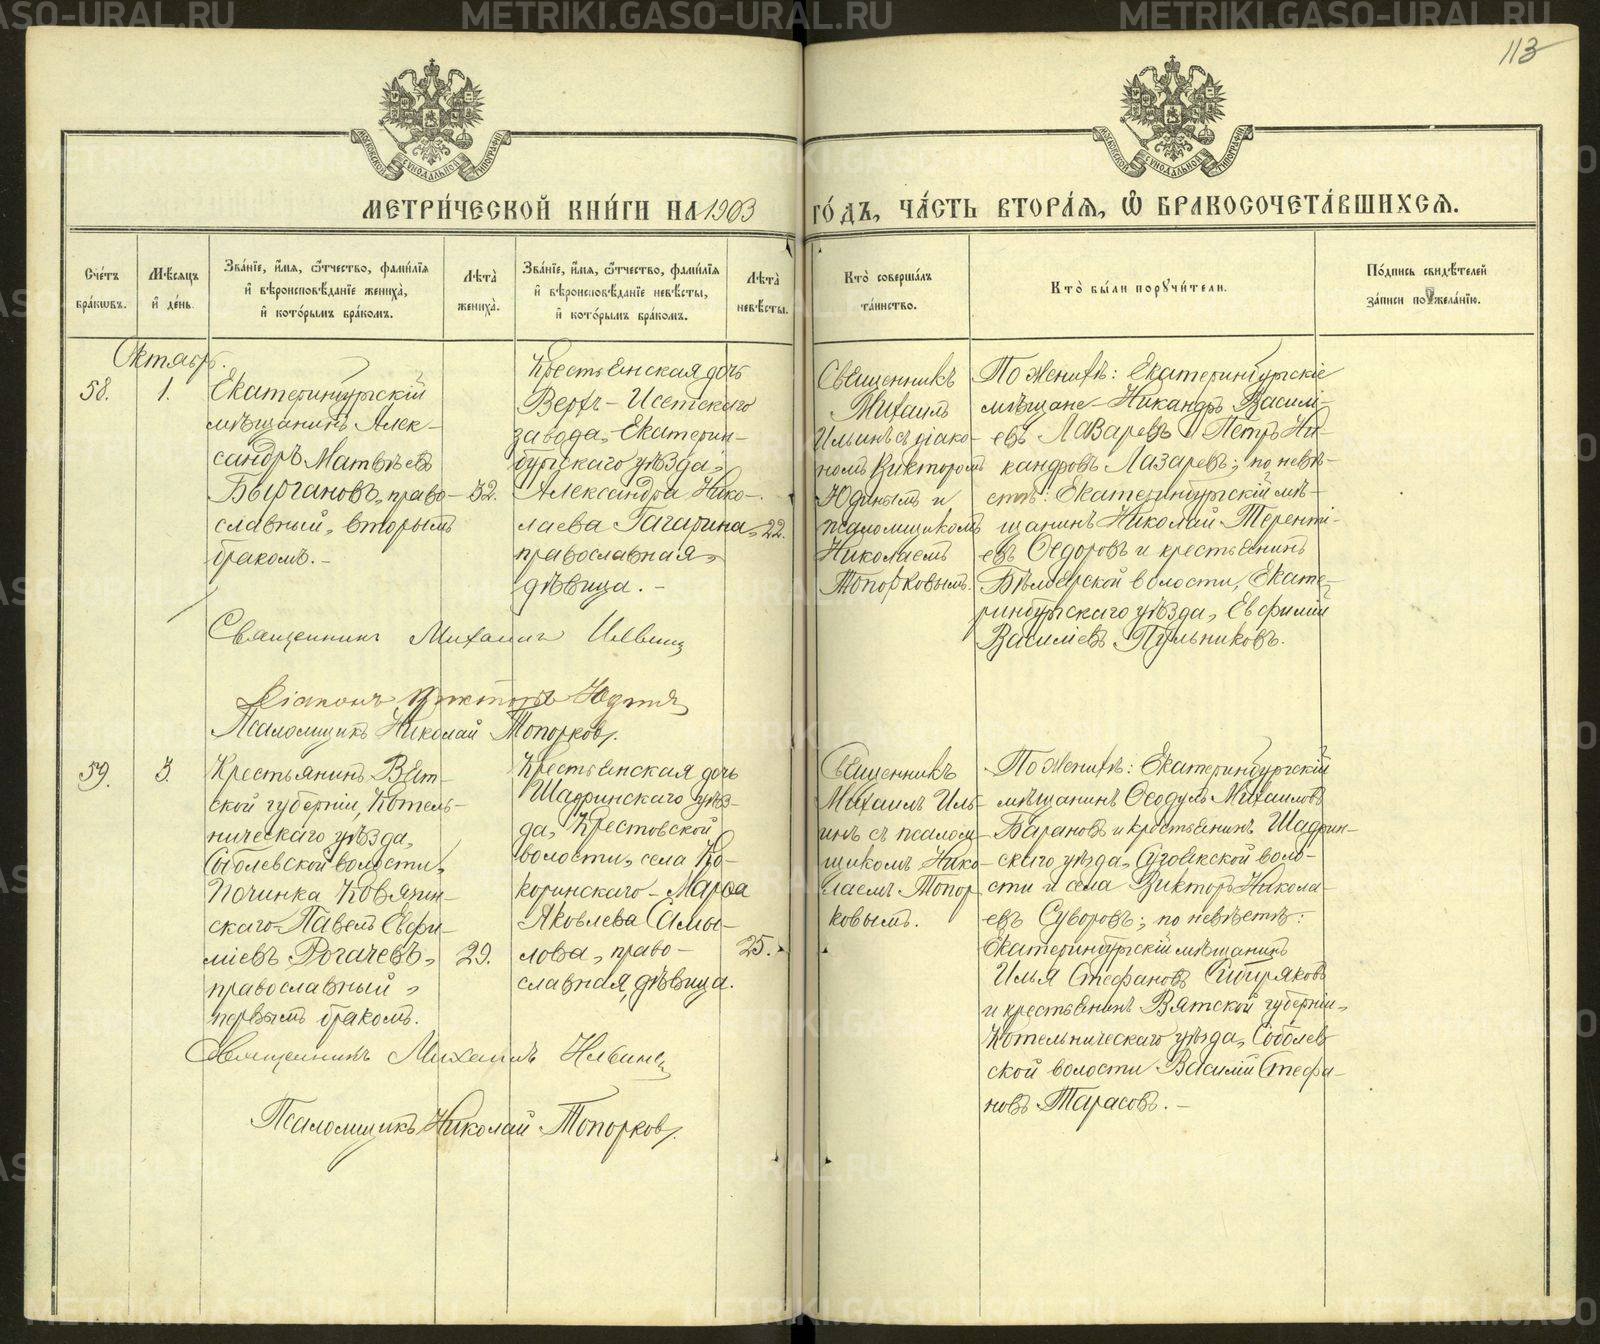 113
МЕТРИ́ЧЕСКОЙ КНИ́ГИ НА 1903 ГО́ДЪ, ЧА́СТЬ ВТОРА́Я, Ѡ БРАКОСОЧЕТА́ВШИХСЯ.
Сче́тъ бра́кωвъ.
Мѣ́сяцъ и҆ де́нь.
Зва́нїе, и҆́мя, ѻ҆́тчество, фами́лїя
и҆ вѣроисповѣ́данїе жениха̀,
и҆ кото́рымъ бра́комъ.
Лѣ́та̀ жениха̀.
Зва́нїе, и҆́мя, ѻ҆́тчество, фами́лїя
и҆ вѣроисповѣ́данїе невѣ́сты,
и҆ кото́рымъ бра́комъ.
Лѣ́та̀ невѣ́сты.
Кто̀ соверша́лъ
та́инство.
Кто̀ бы́ли пору́чи́тели.
По́дпись свидѣ́телей
за́писи по жела́нїю.
Октябрь.
58.
1.
Екатеринбургскій
мѣщанинъ Алек-
сандръ Матвѣевъ
Быргановъ, право-
славный, вторымъ
бракомъ. -
32.
Крестьянская дочь
Верхъ-Исетскаго
завода, Екатерин-
бургскаго уѣзда,
Александра Нико-
лаева Гагарина,
православная,
дѣвица. -
22.
Священникъ
Михаилъ
Ильинъ съ діако-
номъ Викторомъ
Юдинымъ и
псаломщикомъ
Николаемъ
Топорковымъ.
По женихѣ: Екатеринбургскіе
мѣщане Никандръ Васильи-
евъ Лазаревъ и Петръ Ни-
кандровъ Лазаревъ; по невѣ-
стѣ: Екатеринбургскій мѣ-
щанинъ Николай Теренті-
евъ Ѳедоровъ и крестьянинъ
Бѣлоярской волости, Екате-
ринбургскаго уѣзда, Евфимій
Василіевъ Пульниковъ.
Священникъ Михаилъ Ильинъ
Діаконъ Викторъ Юдинъ
Псаломщикъ Николай Топорковъ.
59.
3.
Крестьянинъ Вят-
ской губерніи, Котель-
ническаго уѣзда,
Соболевской волости,
Починка Ковязин-
скаго Павелъ Евфи-
міевъ Рогачевъ,
православный,
первымъ бракомъ.
29.
Крестьянская дочь
Шадринскаго уѣз-
да, Крестовской
волости, села Ко-
коринскаго Марѳа
Яковлева Самы-
лова, право-
славная, дѣвица.
25.
Священникъ
Михаилъ Иль-
инъ съ псалом-
щикомъ Нико-
лаемъ Топор-
ковымъ.
По женихѣ: Екатеринбургскій
мѣщанинъ Ѳеодулъ Михаиловъ
Барановъ и крестьянинъ Шадрин-
скаго уѣзда, Сугоякской воло-
сти и села Викторъ Никола-
евъ Суворовъ; по невѣстѣ:
Екатеринбургскій мѣщанинъ
Илья Стефановъ Сибиряковъ
и крестьянинъ Вятской губерніи,
Котельническаго уѣзда, Соболев-
ской волости Василій Стефа-
новъ Тарасовъ. -
Священникъ Михаилъ Ильинъ
Псаломщикъ Николай Топорковъ.
METRIKI.GASO-URAL.RU